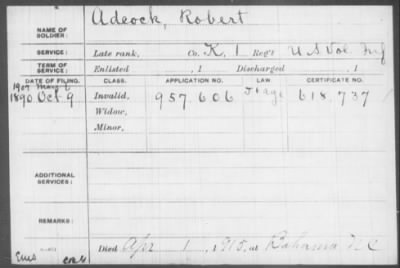 NAME OF SOLDIER: Adcock, Robert
SERVICE: Late rank, Co. K, 1 Reg't U S Vol. Inf
TERM OF SERVICE: Enlisted , 1 Discharged , 1
DATE OF FILING. CLASS. APPLICATION NO. LAW. CERTIFICATE NO.
1907
1890 Oct 9 Invalid, 957606 618,737
Widow,
Minor,
ADDITIONAL SERVICES:
REMARKS:
Died Apr 1, 1915, at Bahama N C